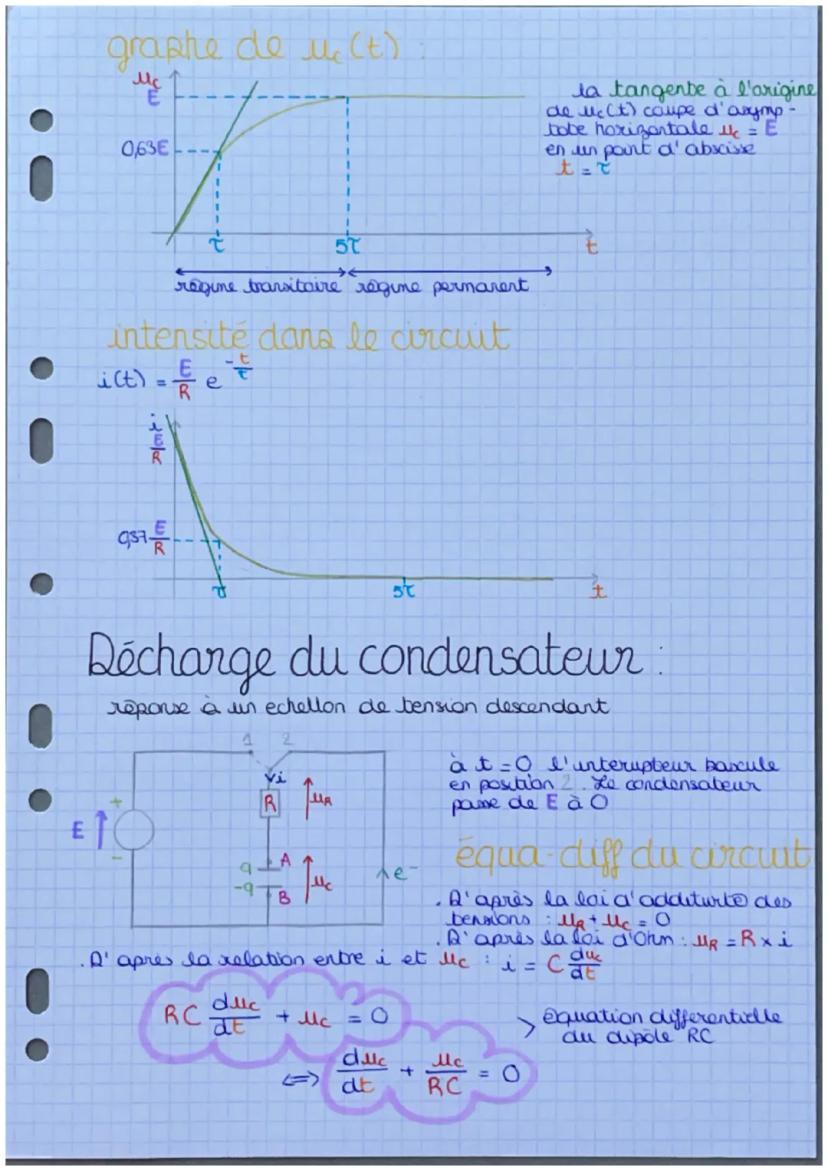 graphe de uc(t) :
uc
E
0,63E
τ
5τ
t
régime transitoire régime permanent
la tangente à l'origine
de uc(t) coupe d'asymp-
tote horizontale uc = E
en un point d'abscisse
t = τ
intensité dans le circuit
i(t) = E/R e^(-t/τ)
i
E/R
0,37 E/R
τ
5τ
t
Décharge du condensateur :
réponse à un echellon de tension descendant
1 2
i
R
uR
E
+
-
q
-q
A
B
uc
e-
à t = 0 l'interupteur bascule
en position 2. Le condensateur
passe de E à 0
équa-diff du circuit
. D'après la loi d'additivité des
tensions : uR + uc = 0
. D'après la loi d'Ohm : uR = R x i
. D'apres la relation entre i et uc : i = C duc/dt
RC duc/dt + uc = 0
> équation différentielle
du dipôle RC
<=> duc/dt + uc/RC = 0